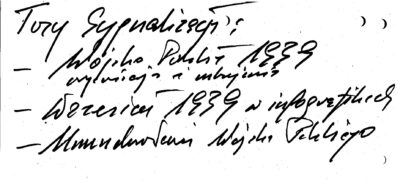 Tory Sygnalizacji:
– Wojsko Polskie 1939
i
– Wrzesień 1939 w infografikach
– Umundurowanie Wojska Polskiego